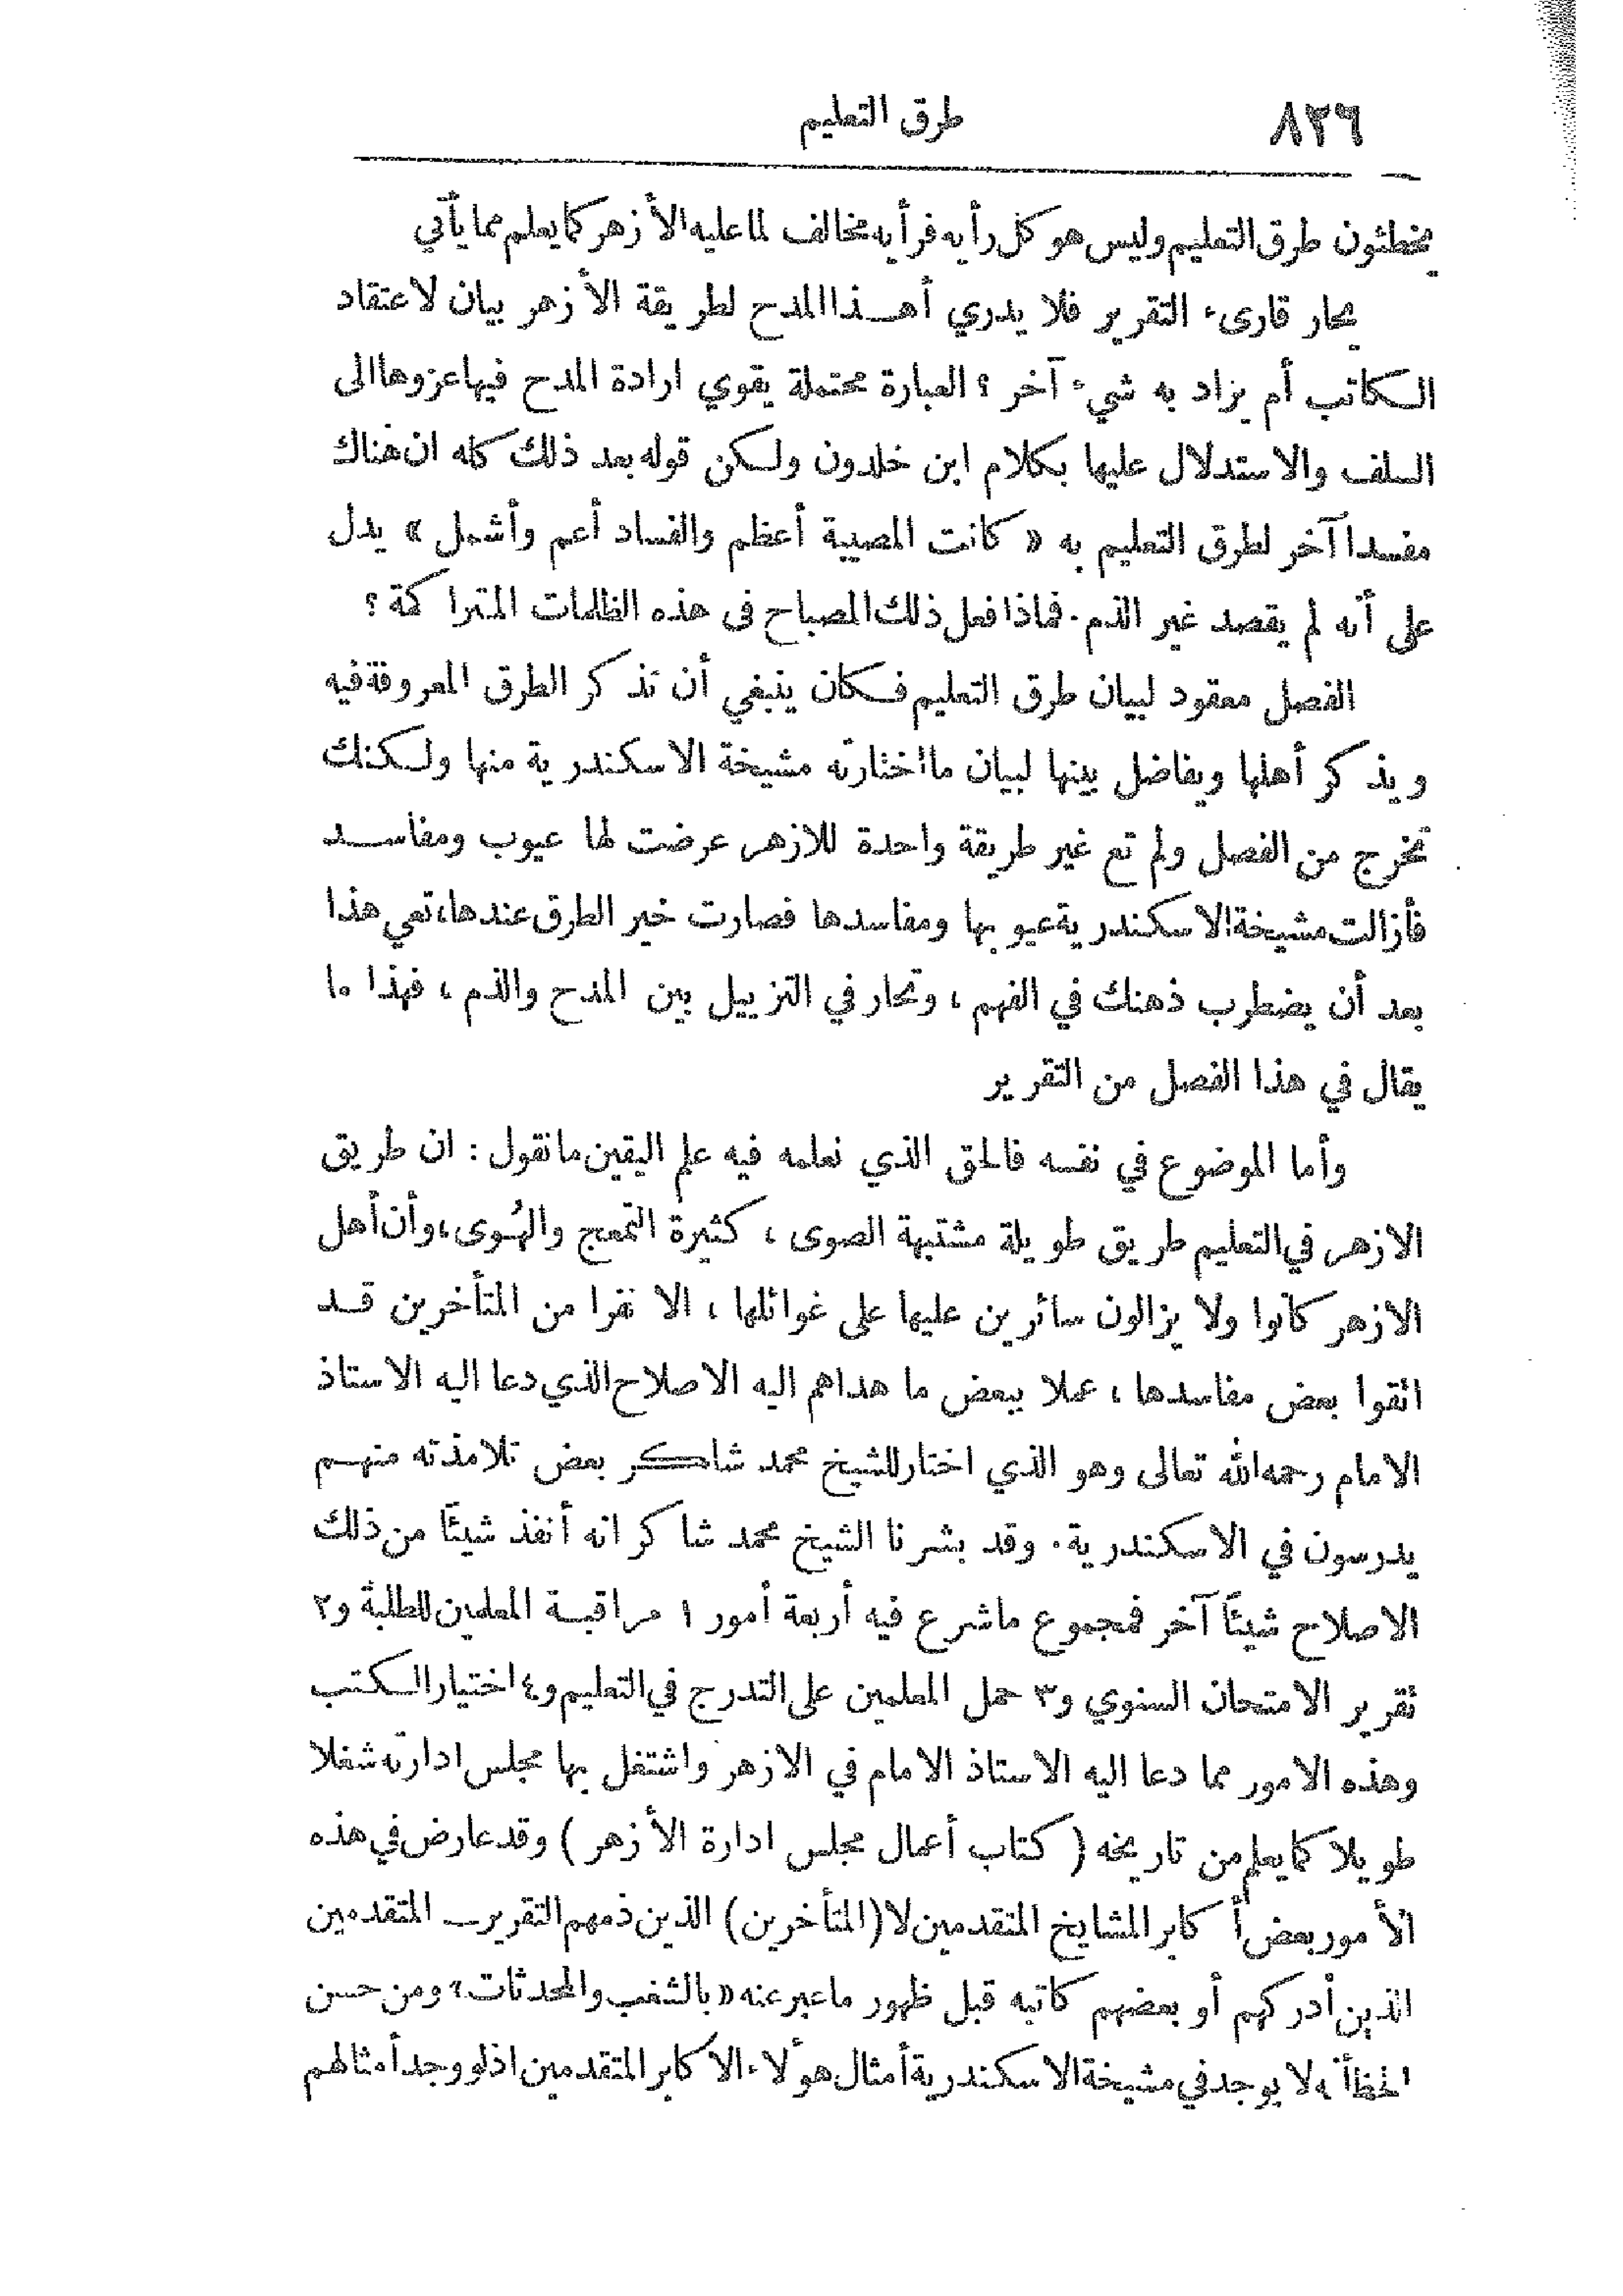 ٨٣٦ طرق التعليم
يخطئون طرق التعليم وليس هو كل رأيه فرأيه مخالف لما عليه الأزهر كما يعلم مما يأتي
يحار قارىء التقرير فلا يدري أهذا المدح لطريقة الأزهر بيان لاعتقاد
الكاتب أم يراد به شيء آخر ؟ العبارة محتملة يقوي ارادة المدح فيها عزوها الى
السلف والاستدلال عليها بكلام ابن خلدون ولكن قوله بعد ذلك كله ان هناك
مفسدا آخر لطرق التعليم به « كانت المصيبة أعظم والفساد أعم وأشمل » يدل
على أنه لم يقصد غير الذم . فماذا فعل ذلك المصباح فى هذه الظلمات المتراكمة ؟
الفصل معقود لبيان طرق التعليم فكان ينبغي أن تذكر الطرق المعروفة فيه
ويذكر أهلها ويفاضل بينها لبيان ما اختارته مشيخة الاسكندرية منها ولكنك
تخرج من الفصل ولم تع غير طريقة واحدة للازهر عرضت لها عيوب ومفاسد
فأزالت مشيخة الاسكندرية عيوبها ومفاسدها فصارت خير الطرق عندها، تعي هذا
بعد أن يضطرب ذهنك في الفهم ، وتحار في التزييل بين المدح والذم ، فهذا ما
يقال في هذا الفصل من التقرير
وأما الموضوع في نفسه فالحق الذي نعلمه فيه علم اليقين ما نقول : ان طريق
الازهر في التعليم طريق طويلة مشتبهة الصوى ، كثيرة التمعج والهُوى ، وأن أهل
الازهر كانوا ولا يزالون سائرين عليها على غوائلها ، الا نفرا من المتأخرين قد
اتقوا بعض مفاسدها ، عملا ببعض ما هداهم اليه الاصلاح الذي دعا اليه الاستاذ
الامام رحمه الله تعالى وهو الذي اختار للشيخ محمد شاكر بعض تلامذته منهم
يدرسون في الاسكندرية . وقد بشرنا الشيخ محمد شاكر انه أنفذ شيئًا من ذلك
الاصلاح شيئًا آخر فمجموع ما شرع فيه أربعة أمور ١ مراقبة المعلمين للطلبة و٢
تقرير الامتحان السنوي و٣ حمل المعلمين على التدرج في التعليم و٤ اختيار الكتب
وهذه الامور مما دعا اليه الاستاذ الامام في الازهر واشتغل بها مجلس ادارته شغلا
طويلا كما يعلم من تاريخه ( كتاب أعمال مجلس ادارة الأزهر ) وقد عارض في هذه
الأمور بعض أكابر المشايخ المتقدمين لا (المتأخرين) الذين ذمهم التقرير ــ المتقدمين
الذين أدركهم أو بعضهم كاتبه قبل ظهور ما عبر عنه « بالشغب والمحدثات » ومن حسن
الحظ أنه لا يوجد في مشيخة الاسكندرية أمثال هؤلاء الاكابر المتقدمين اذ لو وجد أمثالهم